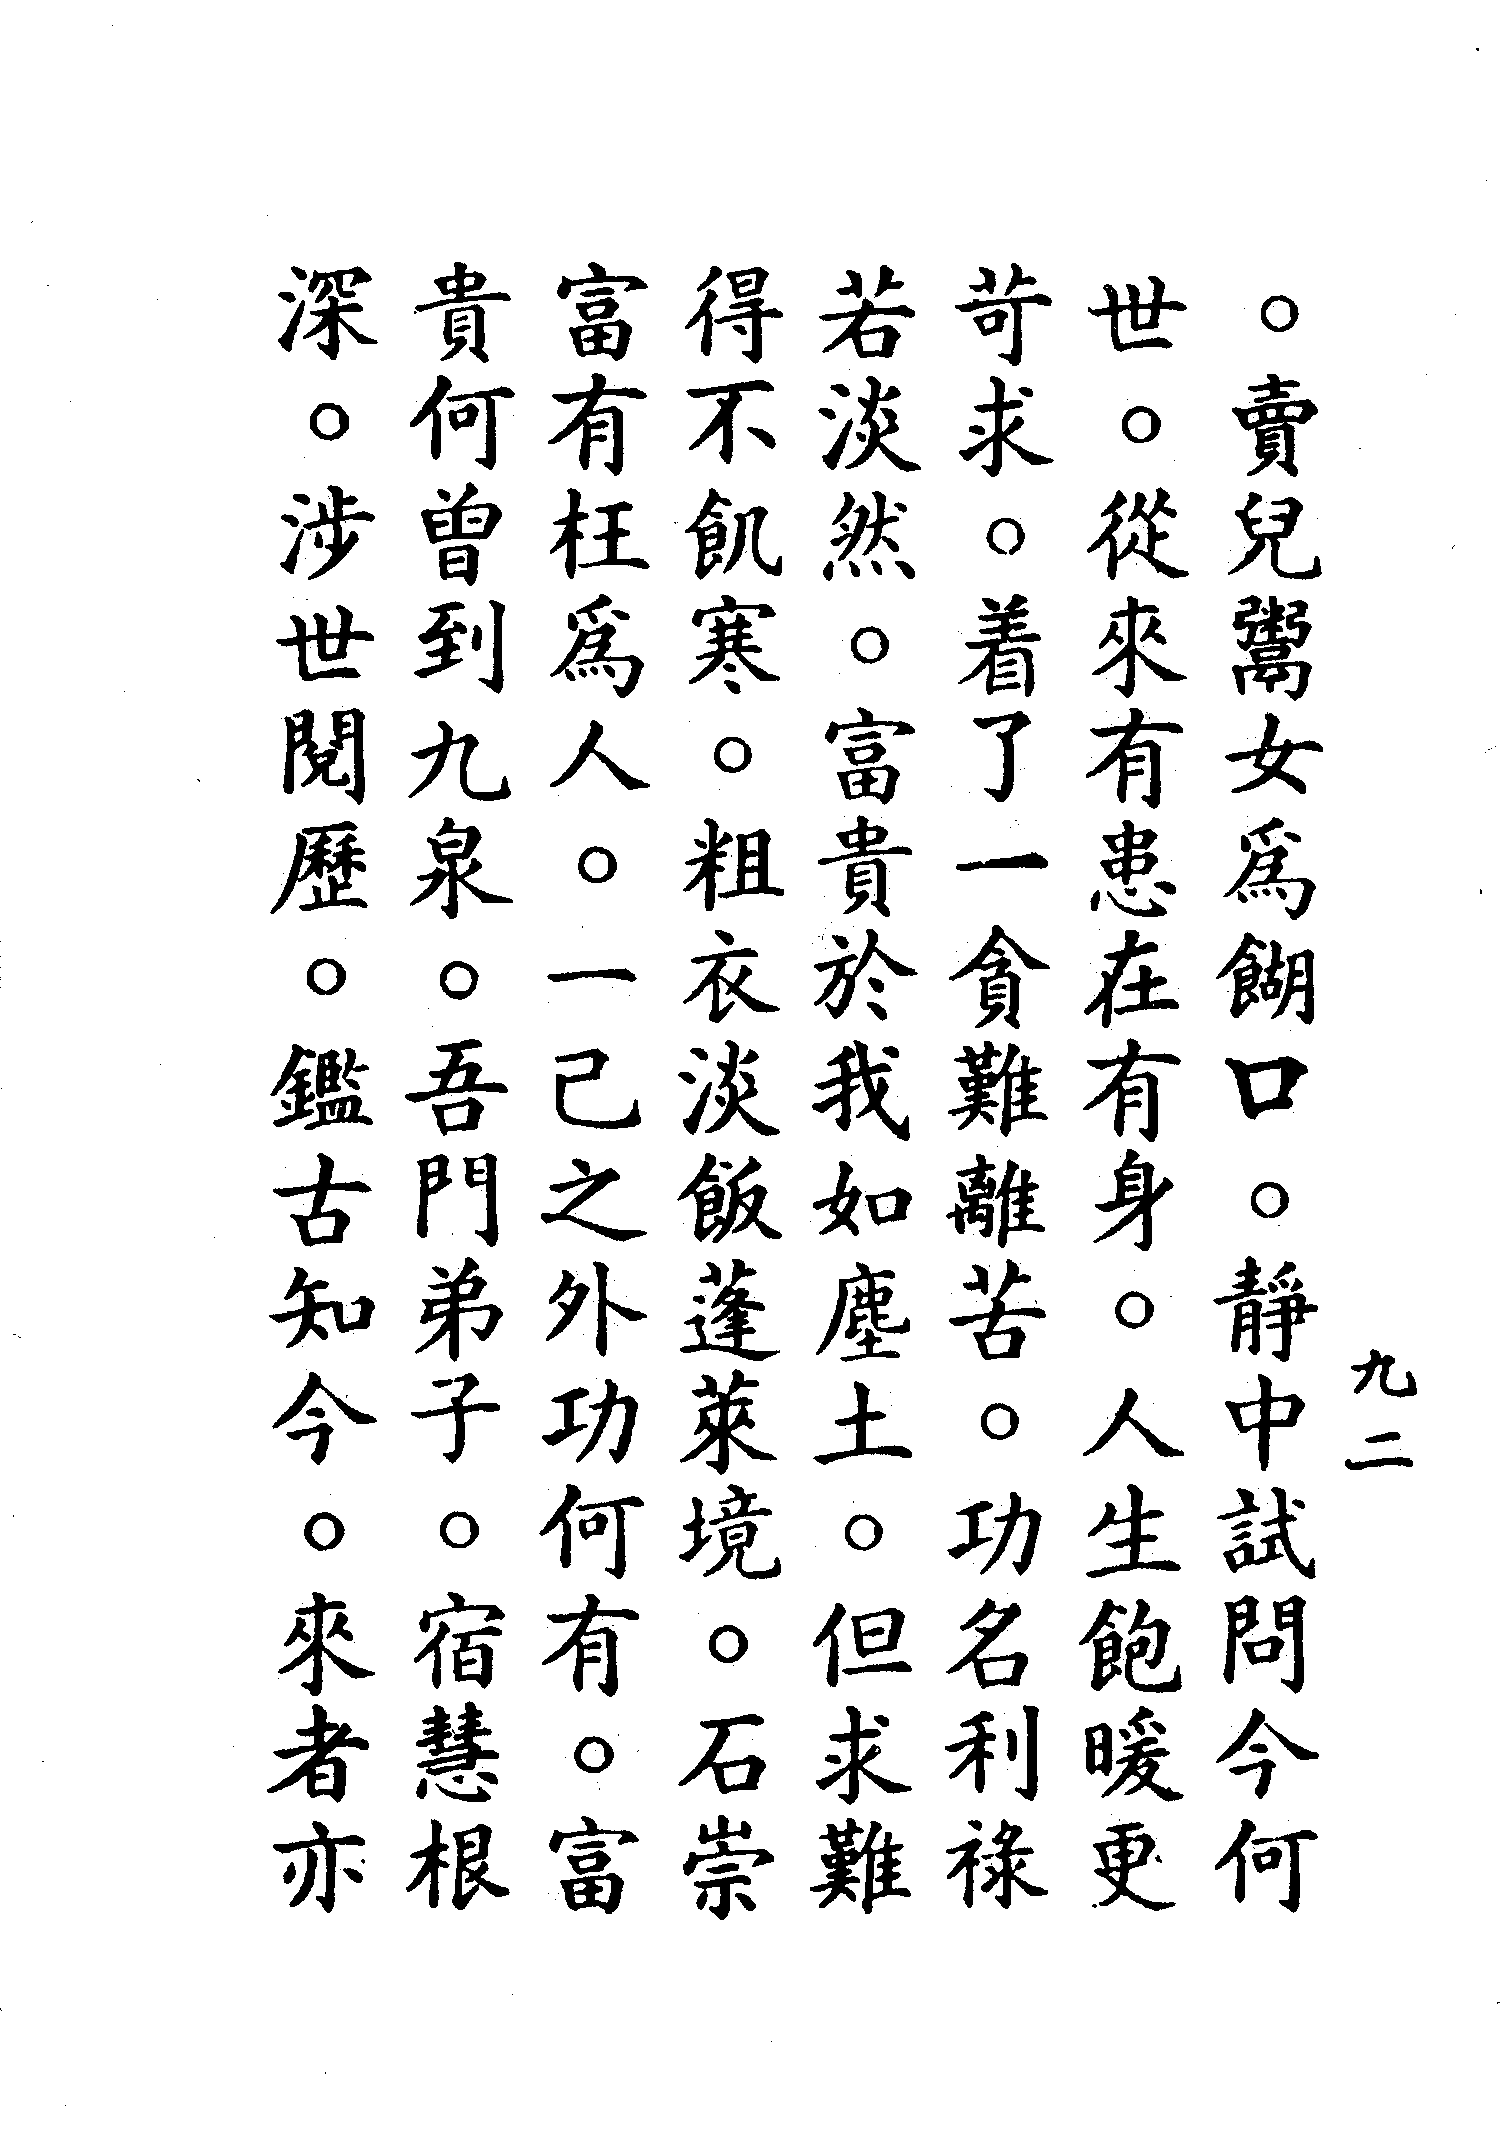 九二
。賣兒鬻女爲餬口。靜中試問今何
世。從來有患在有身。人生飽暖更
苛求。着了一貪難離苦。功名利祿
若淡然。富貴於我如塵土。但求難
得不飢寒。粗衣淡飯蓬萊境。石崇
富有枉爲人。一己之外功何有。富
貴何曾到九泉。吾門弟子。宿慧根
深。涉世閱歷。鑑古知今。來者亦